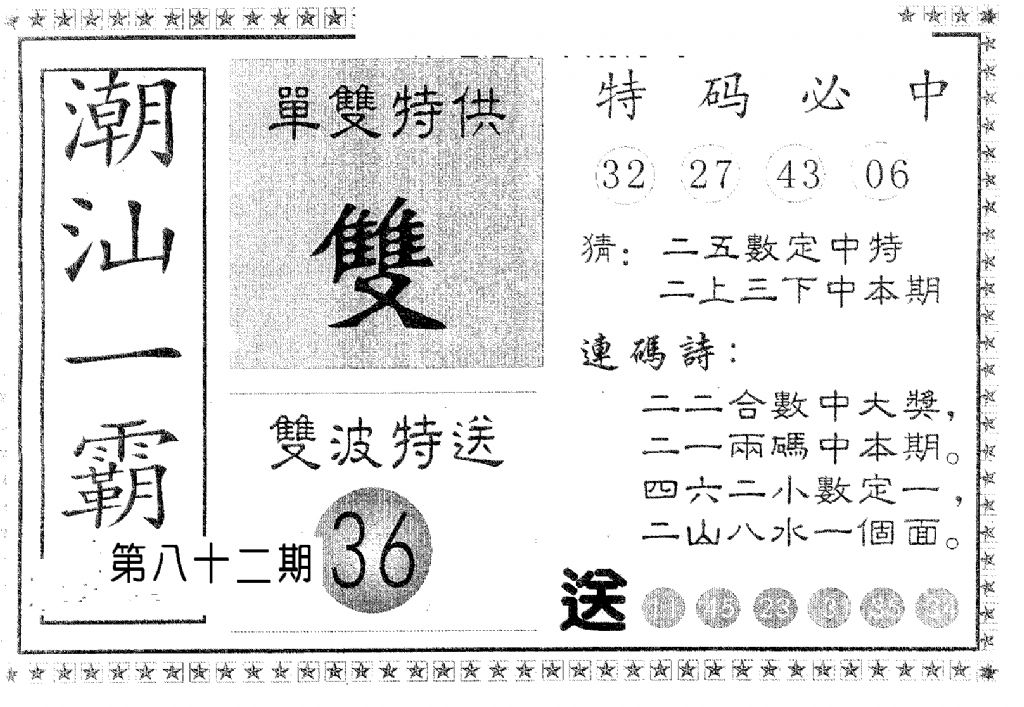 潮汕一霸
第八十二期
單雙特供
雙
雙波特送
36
特码必中
32 27 43 06
猜：二五數定中特
二上三下中本期
連碼詩：
二二合數中大獎，
二一兩碼中本期。
四六二小數定一，
二山八水一個面。
送 11 45 23 31 35